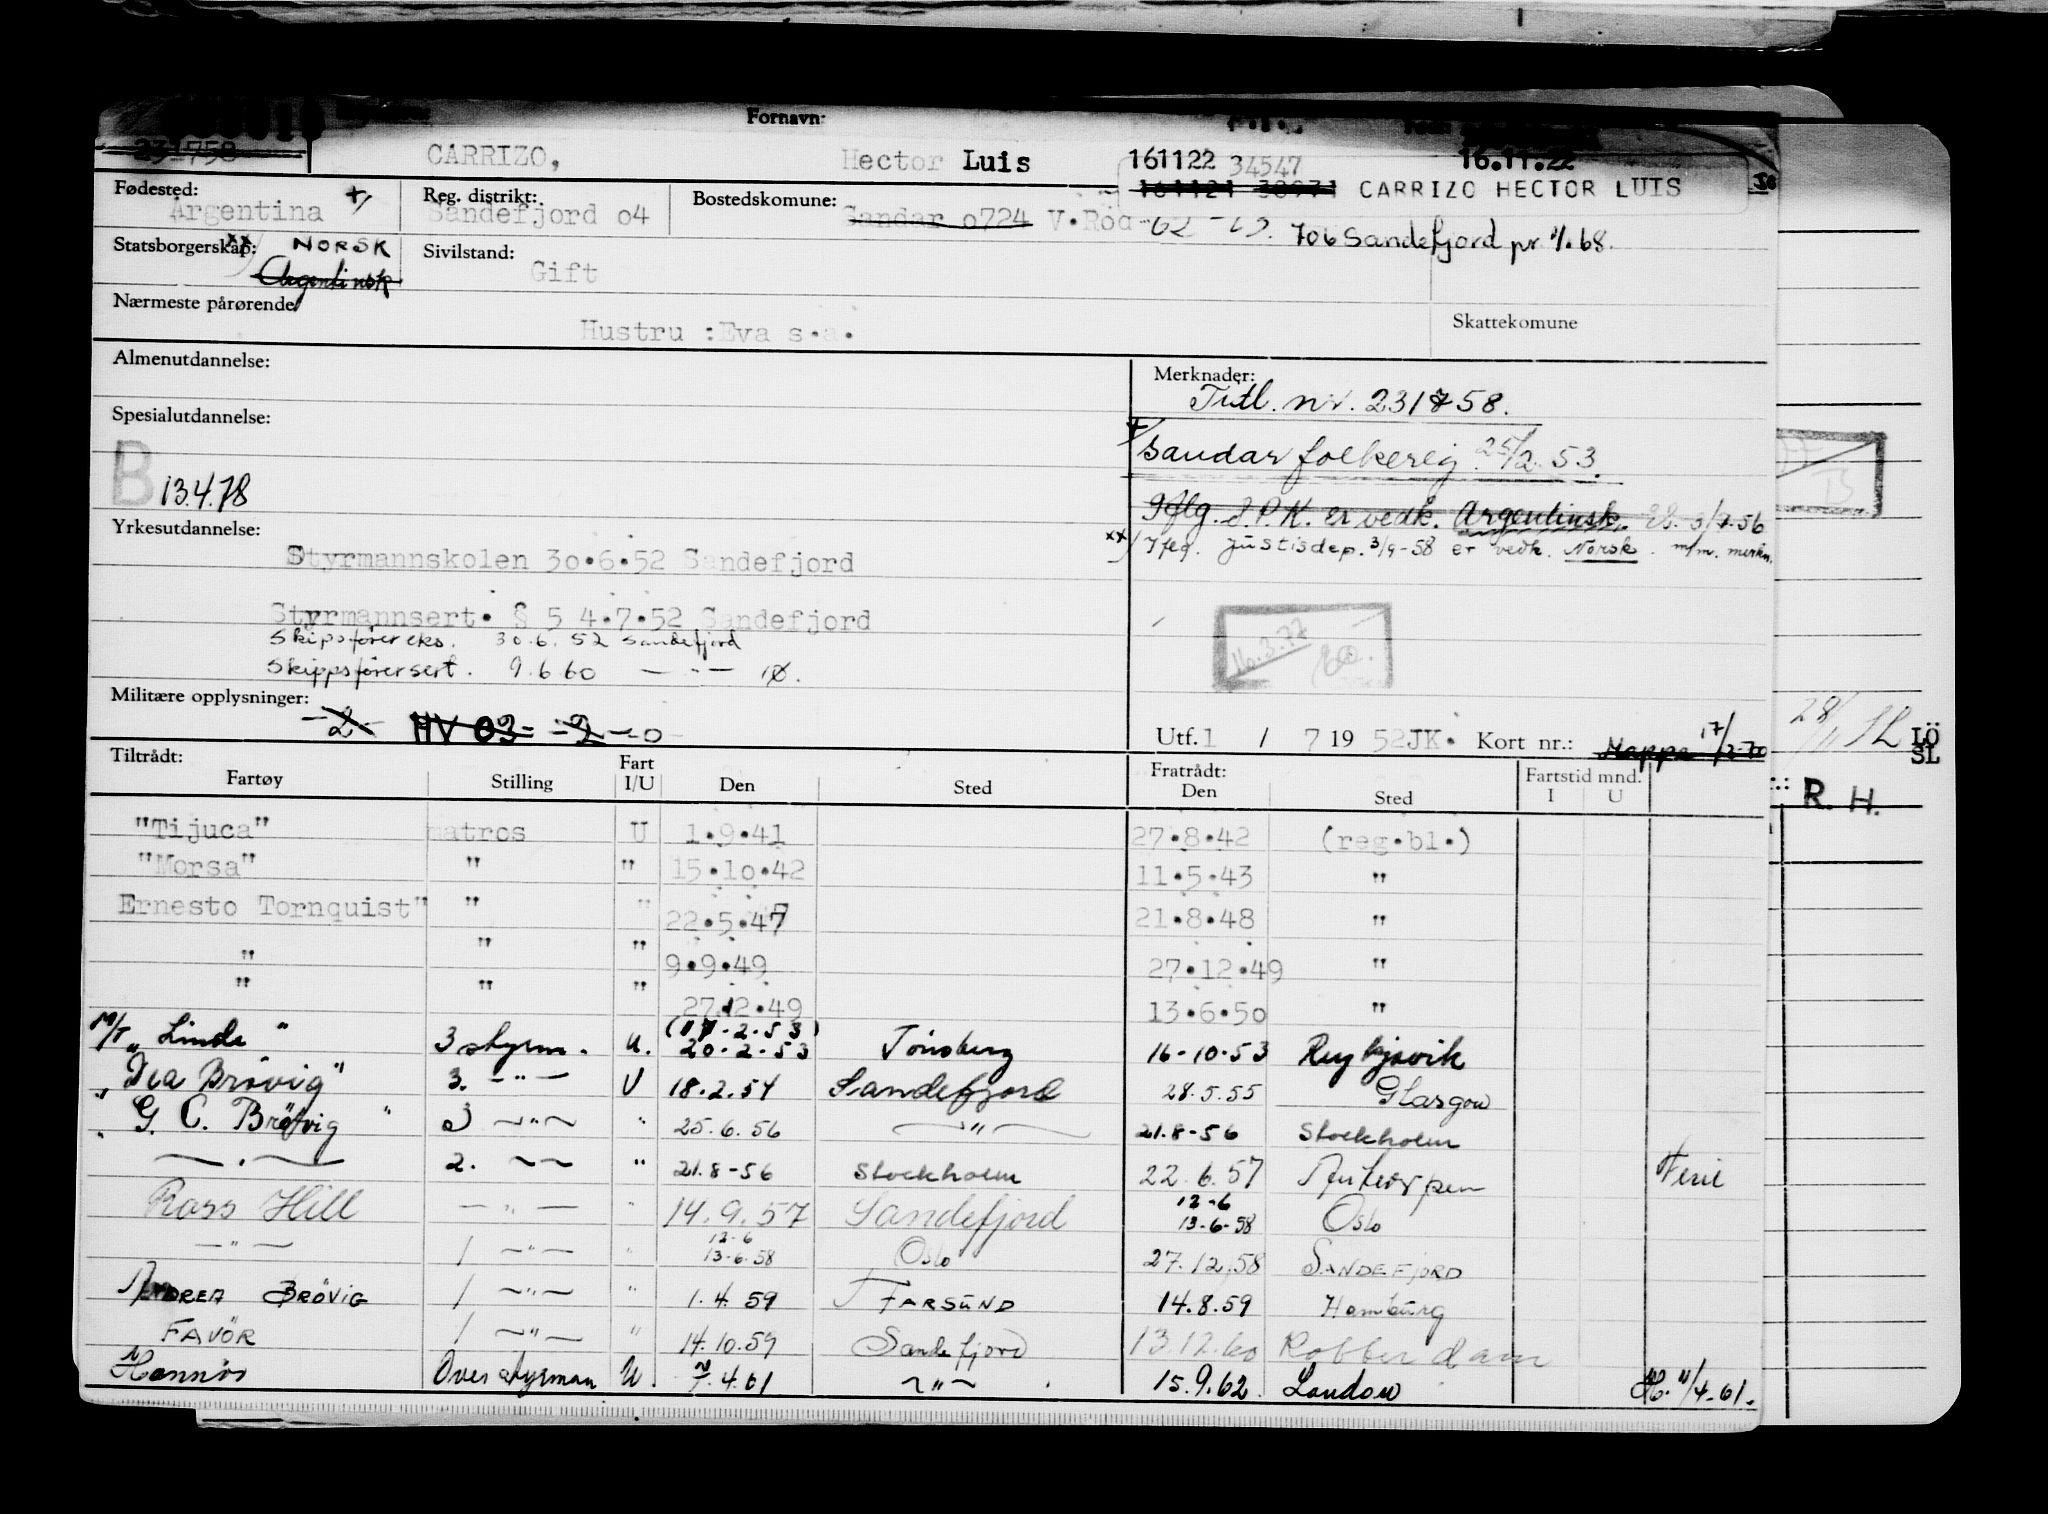 Fornavn:
231758 CARRIZO, Hector Luis 161122 34547 16.11.22
161121 38971 CARRIZO HECTOR LUIS
Fødested: Argentina +/ Reg. distrikt: Sandefjord o4 Bostedskomune: Sandar o724 V.Röd 706 Sandefjord pr 1/1.68.
Statsborgerskap: xx) NORSK Sivilstand: Gift
Argentinsk
Nærmeste pårørende Hustru :Eva s.a. Skattekomune
Almenutdannelse: Merknader:
Tidl. nr. 231758.
Spesialutdannelse:
+/ Sandar folkereg. 25/2.53.
B 13.4.78
Iflg. S.P.K. er vedk. Argentinsk. 3/7.56
Yrkesutdannelse:
xx) Iflg. Justisdep. 3/9-58 er vedk. Norsk. m/m. merkn.
Styrmannskolen 30.6.52 Sandefjord
Styrmannsert. § 5 4.7.52 Sandefjord
Skipsförer eks. 30.6.52 Sandefjord
Skippsförersert. 9.6.60 — " —
16.3.77
Militære opplysninger: -2- HV 03- -2- -0-
Utf. 1 / 7 19 52JK. Kort nr.: Mappe 17/2-70
28/11 SL LÖ
SL
R. H.
Tiltrådt: Fratrådt:
Fartøy Stilling Fart I/U Den Sted Den Sted Fartstid mnd. I U
"Tijuca" matros U 1.9.41 27.8.42 (reg.bl.)
"Morsa" " " 15.10.42 11.5.43 "
Ernesto Tornquist" " " 22.5.47 21.8.48 "
" " " 9.9.49 27.12.49 "
" " " 27.12.49 13.6.50 "
M/T "Linda" 3 styrm. U. (17.2.53) 20-2-53 Tönsberg 16-10-53 Reykjavik
"Dea Brövig" 3. — " — U 18.2.54 Sandefjord 28.5.55 Glasgow
" G. C. Brövig " 3 — " — " 25.6.56 — " — 21.8-56 Stockholm
— " — 2. — " — " 21.8-56 Stockholm 22.6.57 Antwerpen Ferie
Ross Hill — " — " 14.9.57 Sandefjord 12-6 13-6-58 Oslo
— " — 1 — " — " 12-6 13-6.58 Oslo 27.12.58 SANDEFJORD
ANDREA BRÖVIG 1 — " — " 1.4.59 FARSUND 14.8.59 Hamburg
FAVÖR 1 — " — " 14.10.59 Sandefjord 13.12.60 Rotterdam
Hannös Overstyrman U. 7.4.61 — " — 15.9.62. London 11/4-61.